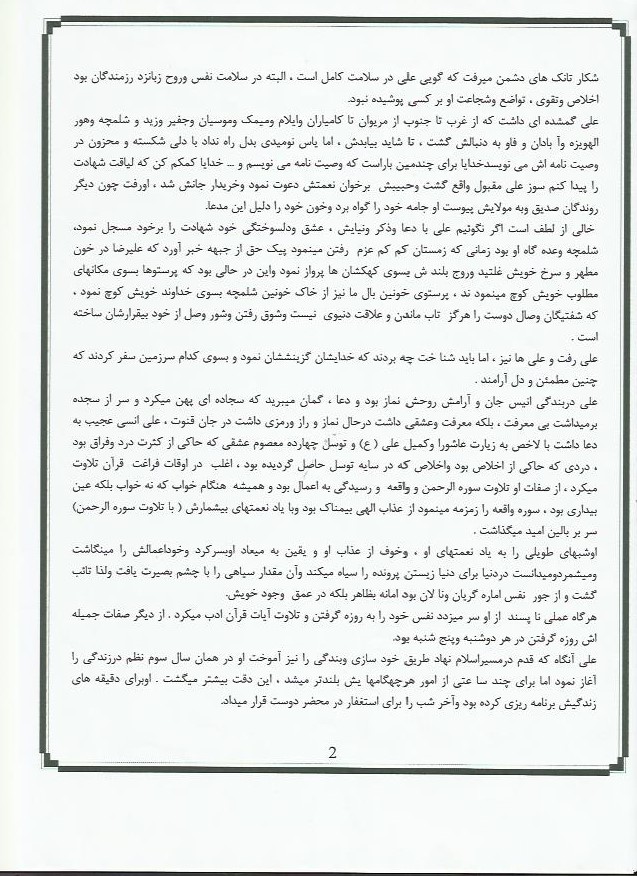 شکار تانک های دشمن میرفت که گویی علی در سلامت کامل است ، البته در سلامت نفس وروح زبانزد رزمندگان بود
اخلاص وتقوی ، تواضع وشجاعت او بر کسی پوشیده نبود.
علی گمشده ای داشت که از غرب تا جنوب از مریوان تا کامیاران وایلام ومیمک وموسیان وجفیر وزید و شلمچه وهور
الهویزه وآ بادان و فاو به دنبالش گشت ، تا شاید بیابدش ، اما یاس نومیدی بدل راه نداد با دلی شکسته و محزون در
وصیت نامه اش می نویسدخدایا برای چندمین باراست که وصیت نامه می نویسم و ... خدایا کمکم کن که لیاقت شهادت
را پیدا کنم سوز علی مقبول واقع گشت وحبیبش برخوان نعمتش دعوت نمود وخریدار جانش شد ، اورفت چون دیگر
روندگان صدیق وبه مولایش پیوست او جامه خود را گواه برد وخون خود را دلیل این مدعا.
خالی از لطف است اگر نگوئیم علی با دعا وذکر ونیایش ، عشق ودلسوختگی خود شهادت را برخود مسجل نمود،
شلمچه وعده گاه او بود زمانی که زمستان کم کم عزم رفتن مینمود پیک حق از جبهه خبر آورد که علیرضا در خون
مطهر و سرخ خویش غلتید وروح بلند ش بسوی کهکشان ها پرواز نمود واین در حالی بود که پرستوها بسوی مکانهای
مطلوب خویش کوچ مینمود ند ، پرستوی خونین بال ما نیز از خاک خونین شلمچه بسوی خداوند خویش کوچ نمود ،
که شفتیگان وصال دوست را هرگز تاب ماندن و علاقت دنیوی نیست وشوق رفتن وشور وصل از خود بیقرارشان ساخته
است .
علی رفت و علی ها نیز ، اما باید شنا خت چه بردند که خدایشان گزینششان نمود و بسوی کدام سرزمین سفر کردند که
چنین مطمئن و دل آرامند .
علی دربندگی انیس جان و آرامش روحش نماز بود و دعا ، گمان میبرید که سجاده ای پهن میکرد و سر از سجده
برمیداشت بی معرفت ، بلکه معرفت وعشقی داشت درحال نماز و راز ورمزی داشت در جان قنوت ، علی انسی عجیب به
دعا داشت با لاخص به زیارت عاشورا وکمیل علی (ع) و توسل چهارده معصوم عشقی که حاکی از کثرت درد وفراق بود
، دردی که حاکی از اخلاص بود واخلاص که در سایه توسل حاصل گردیده بود ، اغلب در اوقات فراغت قرآن تلاوت
میکرد ، از صفات او تلاوت سوره الرحمن و واقعه و رسیدگی به اعمال بود و همیشه هنگام خواب که نه خواب بلکه عین
بیداری بود ، سوره واقعه را زمزمه مینمود از عذاب الهی بیمناک بود وبا یاد نعمتهای بیشمارش ( با تلاوت سوره الرحمن)
سر بر بالین امید میگذاشت .
اوشبهای طویلی را به یاد نعمتهای او ، وخوف از عذاب او و یقین به میعاد اوبسرکرد وخوداعمالش را مینگاشت
ومیشمردومیدانست دردنیا برای دنیا زیستن پرونده را سیاه میکند وآن مقدار سیاهی را با چشم بصیرت یافت ولذا تائب
گشت و از جور نفس اماره گریان ونا لان بود امانه بظاهر بلکه در عمق وجود خویش.
هرگاه عملی نا پسند از او سر میزدد نفس خود را به روزه گرفتن و تلاوت آیات قرآن ادب میکرد . از دیگر صفات جمیله
اش روزه گرفتن در هر دوشنبه وپنج شنبه بود.
علی آنگاه که قدم درمسیراسلام نهاد طریق خود سازی وبندگی را نیز آموخت او در همان سال سوم نظم درزندگی را
آغاز نمود اما برای چند سا عتی از امور هرچهگامها یش بلندتر میشد ، این دقت بیشتر میگشت . اوبرای دقیقه های
زندگیش برنامه ریزی کرده بود وآخر شب را برای استغفار در محضر دوست قرار میداد.
2